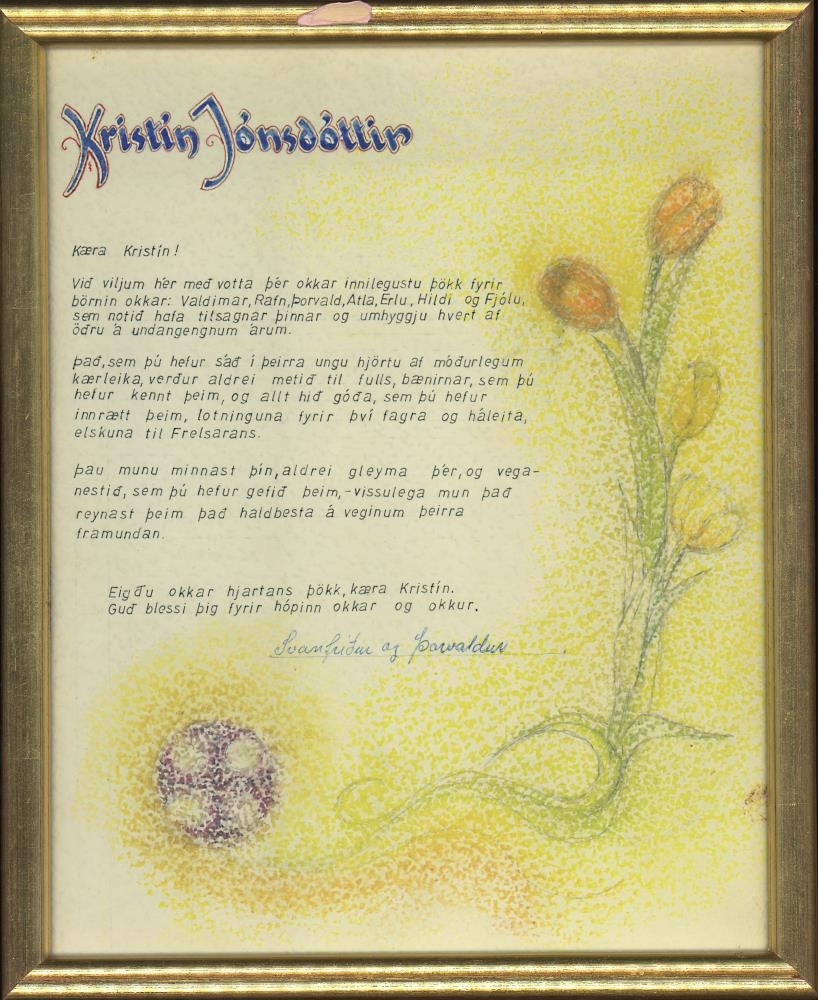 Kristín Jónsdóttir
Kæra Kristín!
Við viljum hér með votta þér okkar innilegustu þökk fyrir
börnin okkar: Valdimar, Rafn, Þorvald, Atla, Erlu, Hildi og Fjólu,
sem notið hafa tilsagnar þinnar og umhyggju hvert af
öðru á undangengnum árum.
Það, sem þú hefur sáð í þeirra ungu hjörtu af móðurlegum
kærleika, verður aldrei metið til fulls, bænirnar, sem þú
hefur kennt þeim, og allt hið góða, sem þú hefur
innrætt þeim, lotninguna fyrir því fagra og háleita,
elskuna til Frelsarans.
Þau munu minnast þín, aldrei gleyma þér, og vega-
nestið, sem þú hefur gefið þeim, - vissulega mun það
reynast þeim það haldbesta á veginum þeirra
framundan.
Eigðu okkar hjartans þökk, kæra Kristín.
Guð blessi þig fyrir hópinn okkar og okkur.
Svanfríður og Þorvaldur